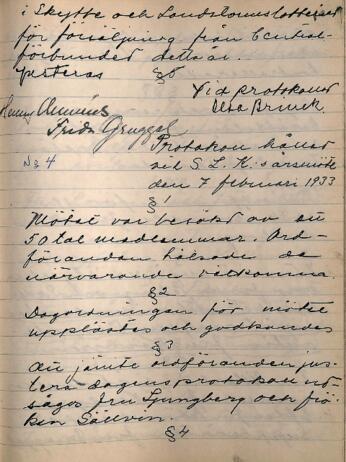 i Skytte och Landstormslotteriet
för försäljning från Central-
förbundet detta år.
Justeras § 5
Vid protokollet
Elsa Brunck.
Frida
Protokoll hållet
vid S. L. K:s årsmöte
den 7 februari 1933
N:o 4
§ 1
Mötet var besökt av ett
50 tal medlemmar. Ord-
föranden hälsade de
närvarande välkomna
§ 2
Dagordningen för mötet
upplästes och godkändes
§ 3
Att jämte ordföranden jus-
tera dagens protokoll ut-
sågos Fru Ljungberg och frö-
ken Sällvin.
§ 4